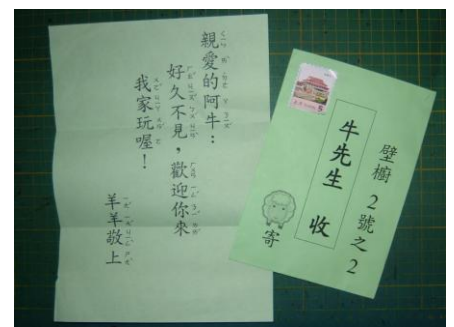 親愛的阿牛：
好久不見，歡迎你來
我家玩喔！
羊羊敬上
壁櫥2號之2
牛先生 收
寄